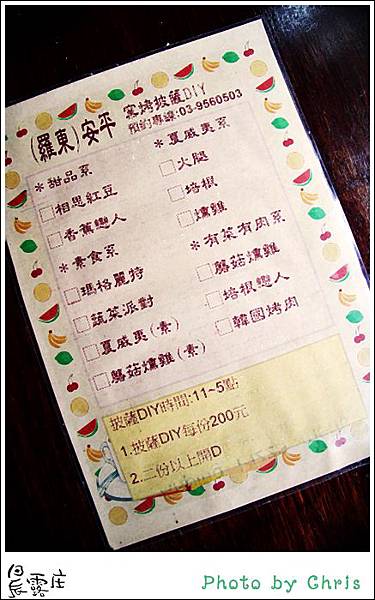 (羅東)安平
窯烤披薩DIY
預約專線:03-9560503
*甜品系
□相思紅豆
□香蕉戀人
*素食系
□瑪格麗特
□蔬菜派對
□夏威夷(素)
□蘑菇燻雞(素)
*夏威夷系
□火腿
□培根
□燻雞
*有菜有肉系
□蘑菇燻雞
□培根戀人
□韓國烤肉
披薩DIY時間:11~5點
1.披薩DIY每份200元
2.二份以上開D
晨露庄
Photo by Chris